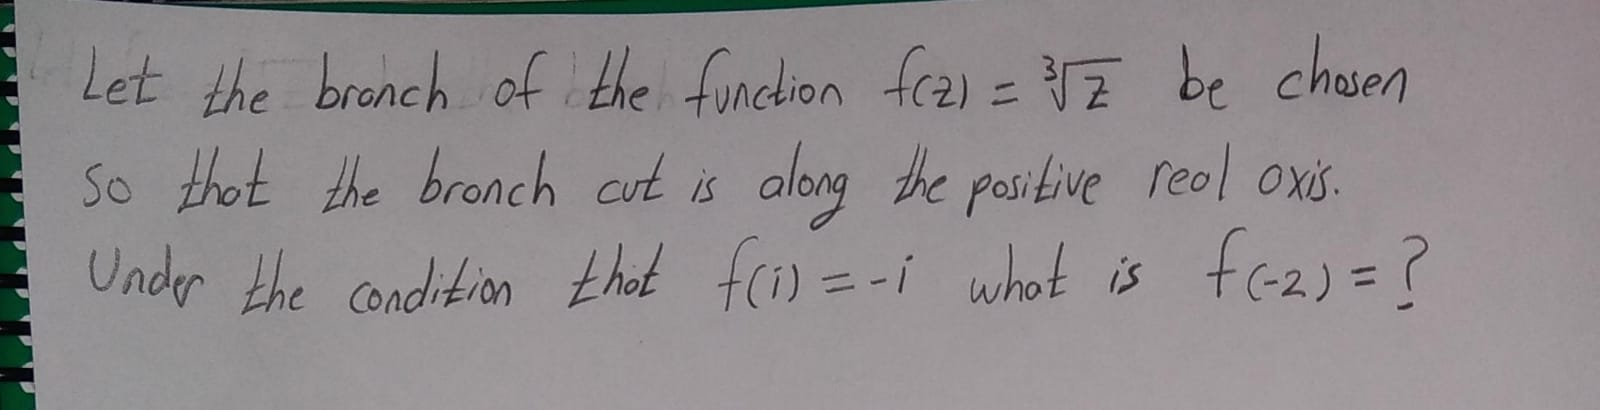 Let the branch of the function f(z) = ∛z be chosen
so that the branch cut is along the positive real axis.
Under the condition that f(i) = -i what is f(-2) = ?